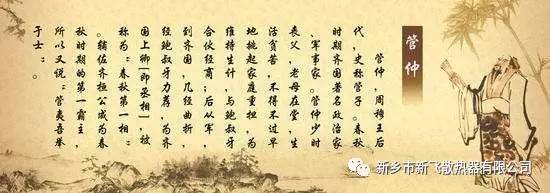 管仲
管仲，周穆王后
代，史称管子。春秋
时期齐国著名政治家
、军事家。管仲少时
丧父，老母在堂，生
活贫苦，不得不过早
地挑起家庭重担，为
维持生计，与鲍叔牙
合伙经商；后从军，
到齐国，几经曲折
经鲍叔牙力荐，为齐
国上卿（即丞相），被
称为“春秋第一相”
。辅佐齐桓公成为春
秋时期的第一霸主，
所以又说“管夷吾举
于士”。
新乡市新飞散热器有限公司